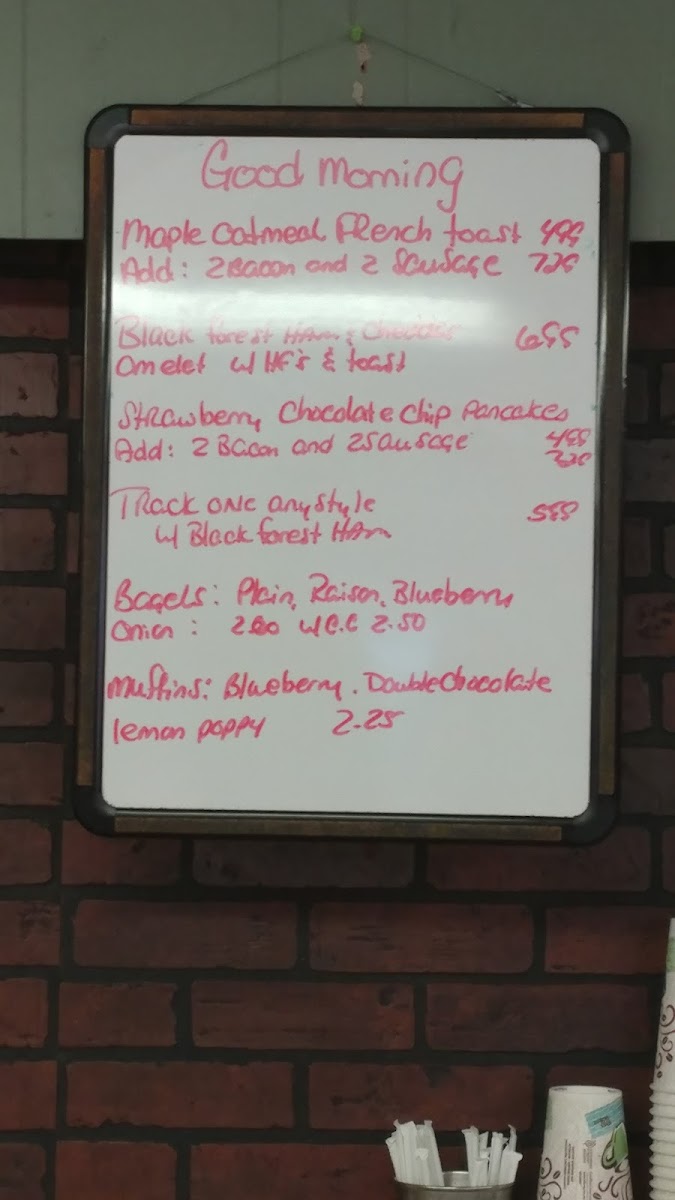 Good Morning
Maple Oatmeal French toast 499
Add: 2 Bacon and 2 Sausage 725
Black forest Ham & Cheddar 655
Omelet w/ HF's & toast
Strawberry Chocolate Chip Pancakes
Add: 2 Bacon and 2 Sausage 499
Track one any style 599
w/ Black forest Ham
Bagels: Plain, Raison, Blueberry
Onion: 2.00 w/ C.C 2.50
Muffins: Blueberry. Double Chocolate
lemon poppy 2.25